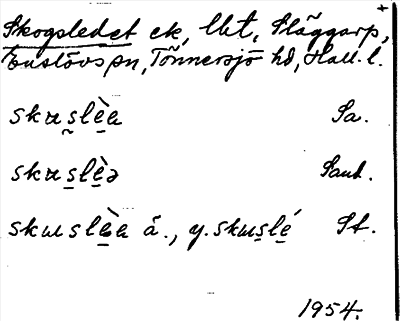 Skogsledet ek, lht, Släggarp,
Enslövs sn, Tönnersjö hd, Hall. l.
skusl̲è̲a Sa.
sku̲slè̲ə Sand.
skuslè̲a ä., y. skus̲lé̲ St.
1954.